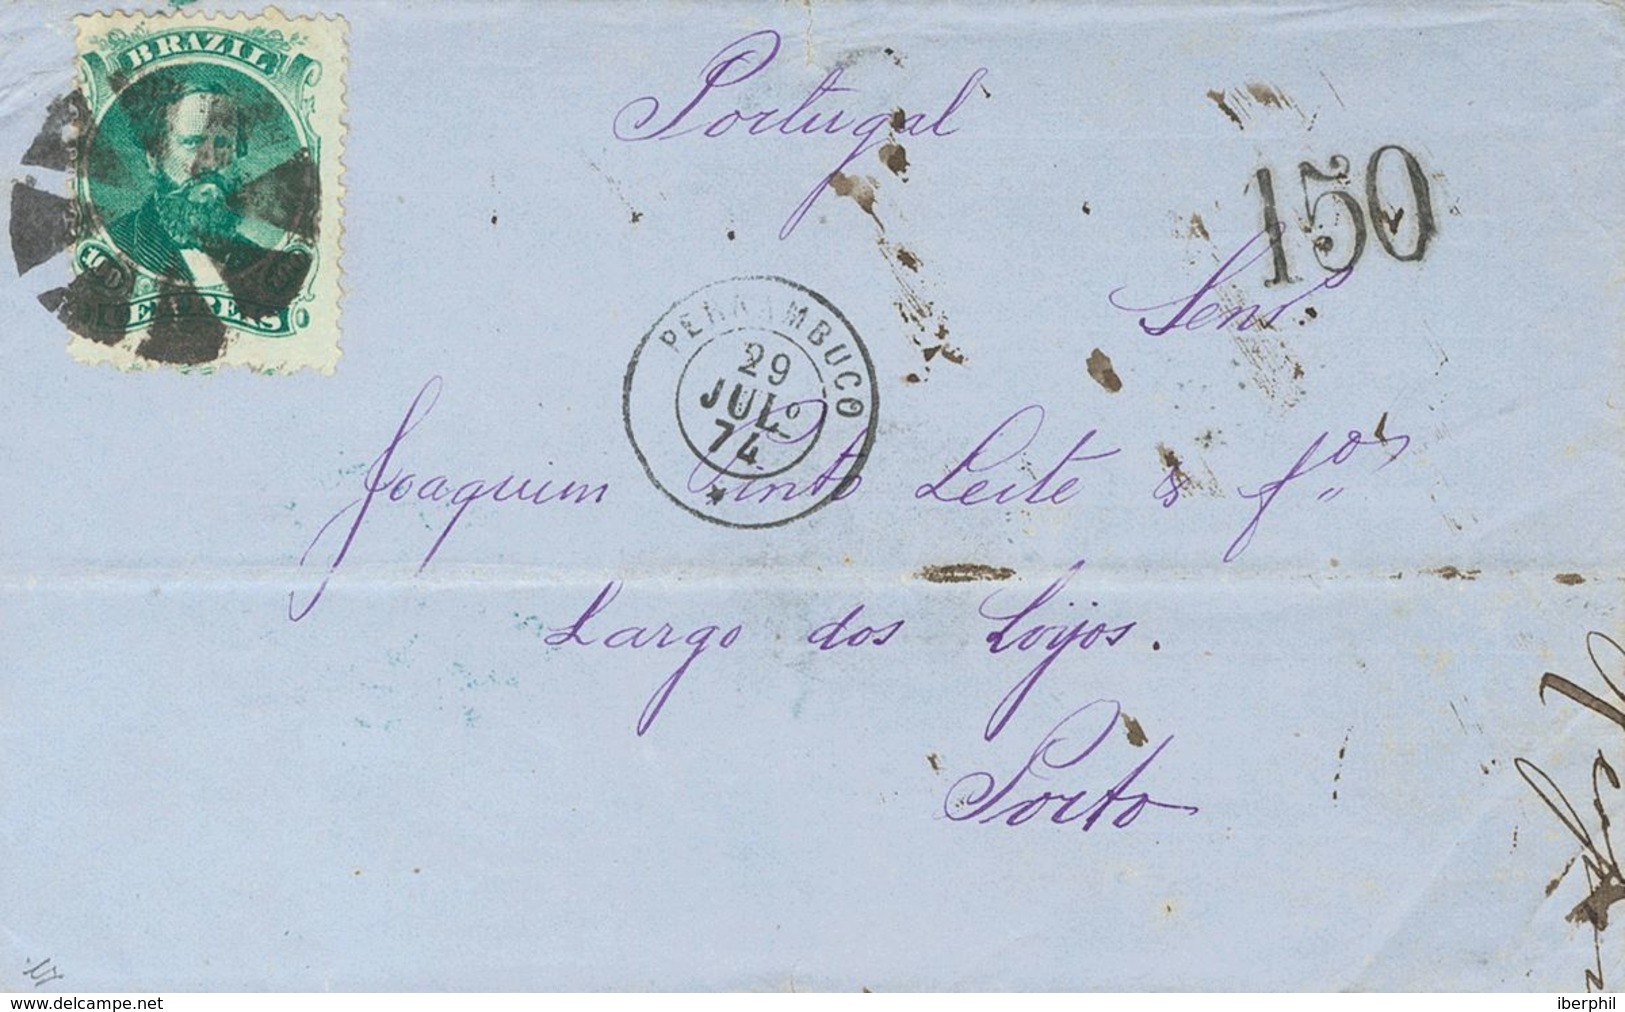 BRAZIL
Portugal
150
Senr.
PERNAMBUCO
29
JULº
74
Joaquim Pinto Leite & fºs
Largo dos Loijos.
Porto
www.delcampe.net
iberphil